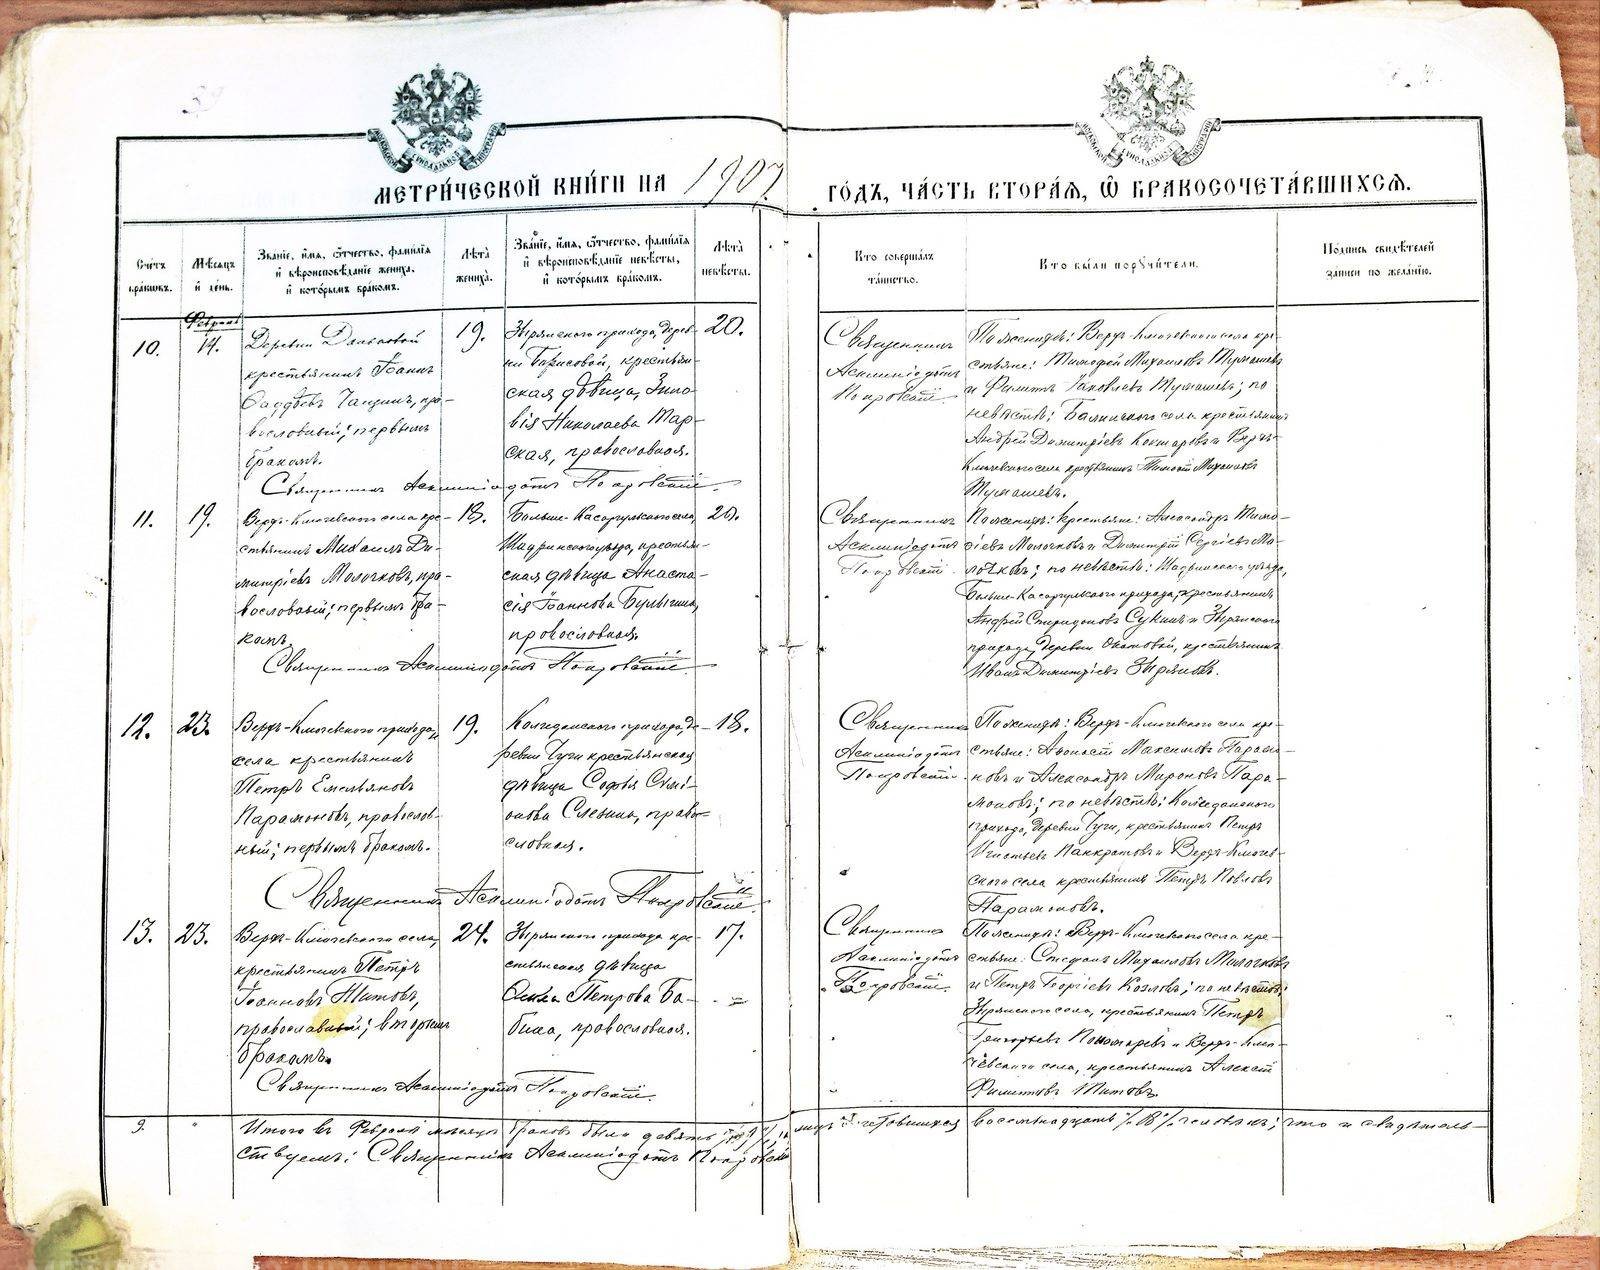 МЕТРИ́ЧЕСКОЙ КНИ́ГИ НА 1907 ГО́ДЪ, ЧА́СТЬ ВТОРА́Я, Ѡ҆ БРАКОСОЧЕТА́ВШИХСЯ.
Сче́тъ бра́кѡвъ.
Мѣ́сяцъ и҆ де́нь.
Зва́нїе, и҆́мя, ѻ҆́тчество, фами́лїя
и҆ вѣроисповѣ́данїе жениха̀,
и҆ кото́рымъ бра́комъ.
Лѣ́та жениха̀.
Зва́нїе, и҆́мя, ѻ҆́тчество, фами́лїя
и҆ вѣроисповѣ́данїе невѣ́сты,
и҆ кото́рымъ бра́комъ.
Лѣ́та невѣ́сты.
Кто̀ соверша́лъ
та́инство.
Кто̀ бы́ли порꙋчи́тели.
По́дпись свидѣ́телей
за́писи по жела́нїю.
10.
Февраль
14.
Деревни
крестьянинъ Іоаннъ
Ѳаддѣевъ, пра-
вославный; первымъ
бракомъ.
19.
Зырянскаго прихода, дерев-
ни Борисовой, крестьян-
ская дѣвица, Зино-
вія Николаева Тар-
ская, православная.
20.
Священникъ
Асклипіодотъ
Покровскій.
По женихѣ: Верхъ-Ключевскаго села кре-
стьяне: Тимоѳей Михаиловъ Тупашевъ
и Филиппъ Іаковлевъ Тупашевъ; по
невѣстѣ: села крестьянинъ
Андрей Димитріевъ и Верхъ-
Ключевскаго села крестьянинъ Михаиловъ
Тупашевъ.
Священникъ Асклипіодотъ Покровскій.
11.
19.
Верхъ-Ключевскаго села кре-
стьянинъ Михаилъ Ди-
митріевъ Молочковъ, пра-
вославный; первымъ бра-
комъ.
18.
Больше-Касаргульскаго села,
Шадринскаго уѣзда, крестьян-
ская дѣвица Анаста-
сія Іоаннова Булыгина,
православная.
20.
Священникъ
Асклипіодотъ
Покровскій
По женихѣ: крестьяне: Александръ Тимо-
ѳіевъ Молочковъ и Димитрій Сергіевъ Мо-
лочковъ; по невѣстѣ: Шадринскаго уѣзда,
Больше-Касаргульскаго прихода, крестьянинъ
Андрей Спиридоновъ Сукинъ и Зырянскаго
прихода, деревни крестьянинъ
Иванъ Димитріевъ Зыряновъ.
Священникъ Асклипіодотъ Покровскій
12.
23.
Верхъ-Ключевского прихода, и
села крестьянинъ
Петръ Емельяновъ
Парамоновъ, православ-
ный; первымъ бракомъ.
19.
Колчеданскаго прихода, де-
ревни Чуги крестьянская
дѣвица Софья Симе-
онова, право-
славная.
18.
Священникъ
Асклипіодотъ
Покровскій
По женихѣ: Верхъ-Ключевского села кре-
стьяне: Аѳонасій Максимовъ Парамо-
новъ и Александръ Мироновъ Пара-
моновъ; по невѣстѣ: Колчеданскаго
прихода, деревни Чуги, крестьянинъ Петръ
Игнатьевъ Панкратовъ и Верхъ-Ключев-
скаго села крестьянинъ Петръ Павловъ
Парамоновъ.
Священникъ Асклипіодотъ Покровскій
13.
23.
Верхъ-Ключевского села,
крестьянинъ Петръ
Іоанновъ Титовъ,
православный; вторымъ
бракомъ.
24.
Зырянскаго прихода кре-
стьянская дѣвица
Ѳекла Петрова Ба-
бина, православная.
17.
Священникъ
Асклипіодотъ
Покровскій.
По женихѣ: Верхъ-Ключевского села кре-
стьяне: Стефанъ Михаиловъ Молочковъ
и Петръ Георгіевъ Козловъ; по невѣстѣ:
Зырянскаго села, крестьянинъ Петръ
Григорьевъ Пономаревъ и Верхъ-Клю-
чевскаго села, крестьянинъ Алексѣй
Филипповъ Титовъ.
Священникъ Асклипіодотъ Покровскій.
9. " Итого въ Февралѣ мѣсяцѣ браковъ было девять /9/, лицъ восемнадцать /18/ человѣкъ; что и свидѣтель-
ствуемъ: Священникъ Асклипіодотъ Покровскій